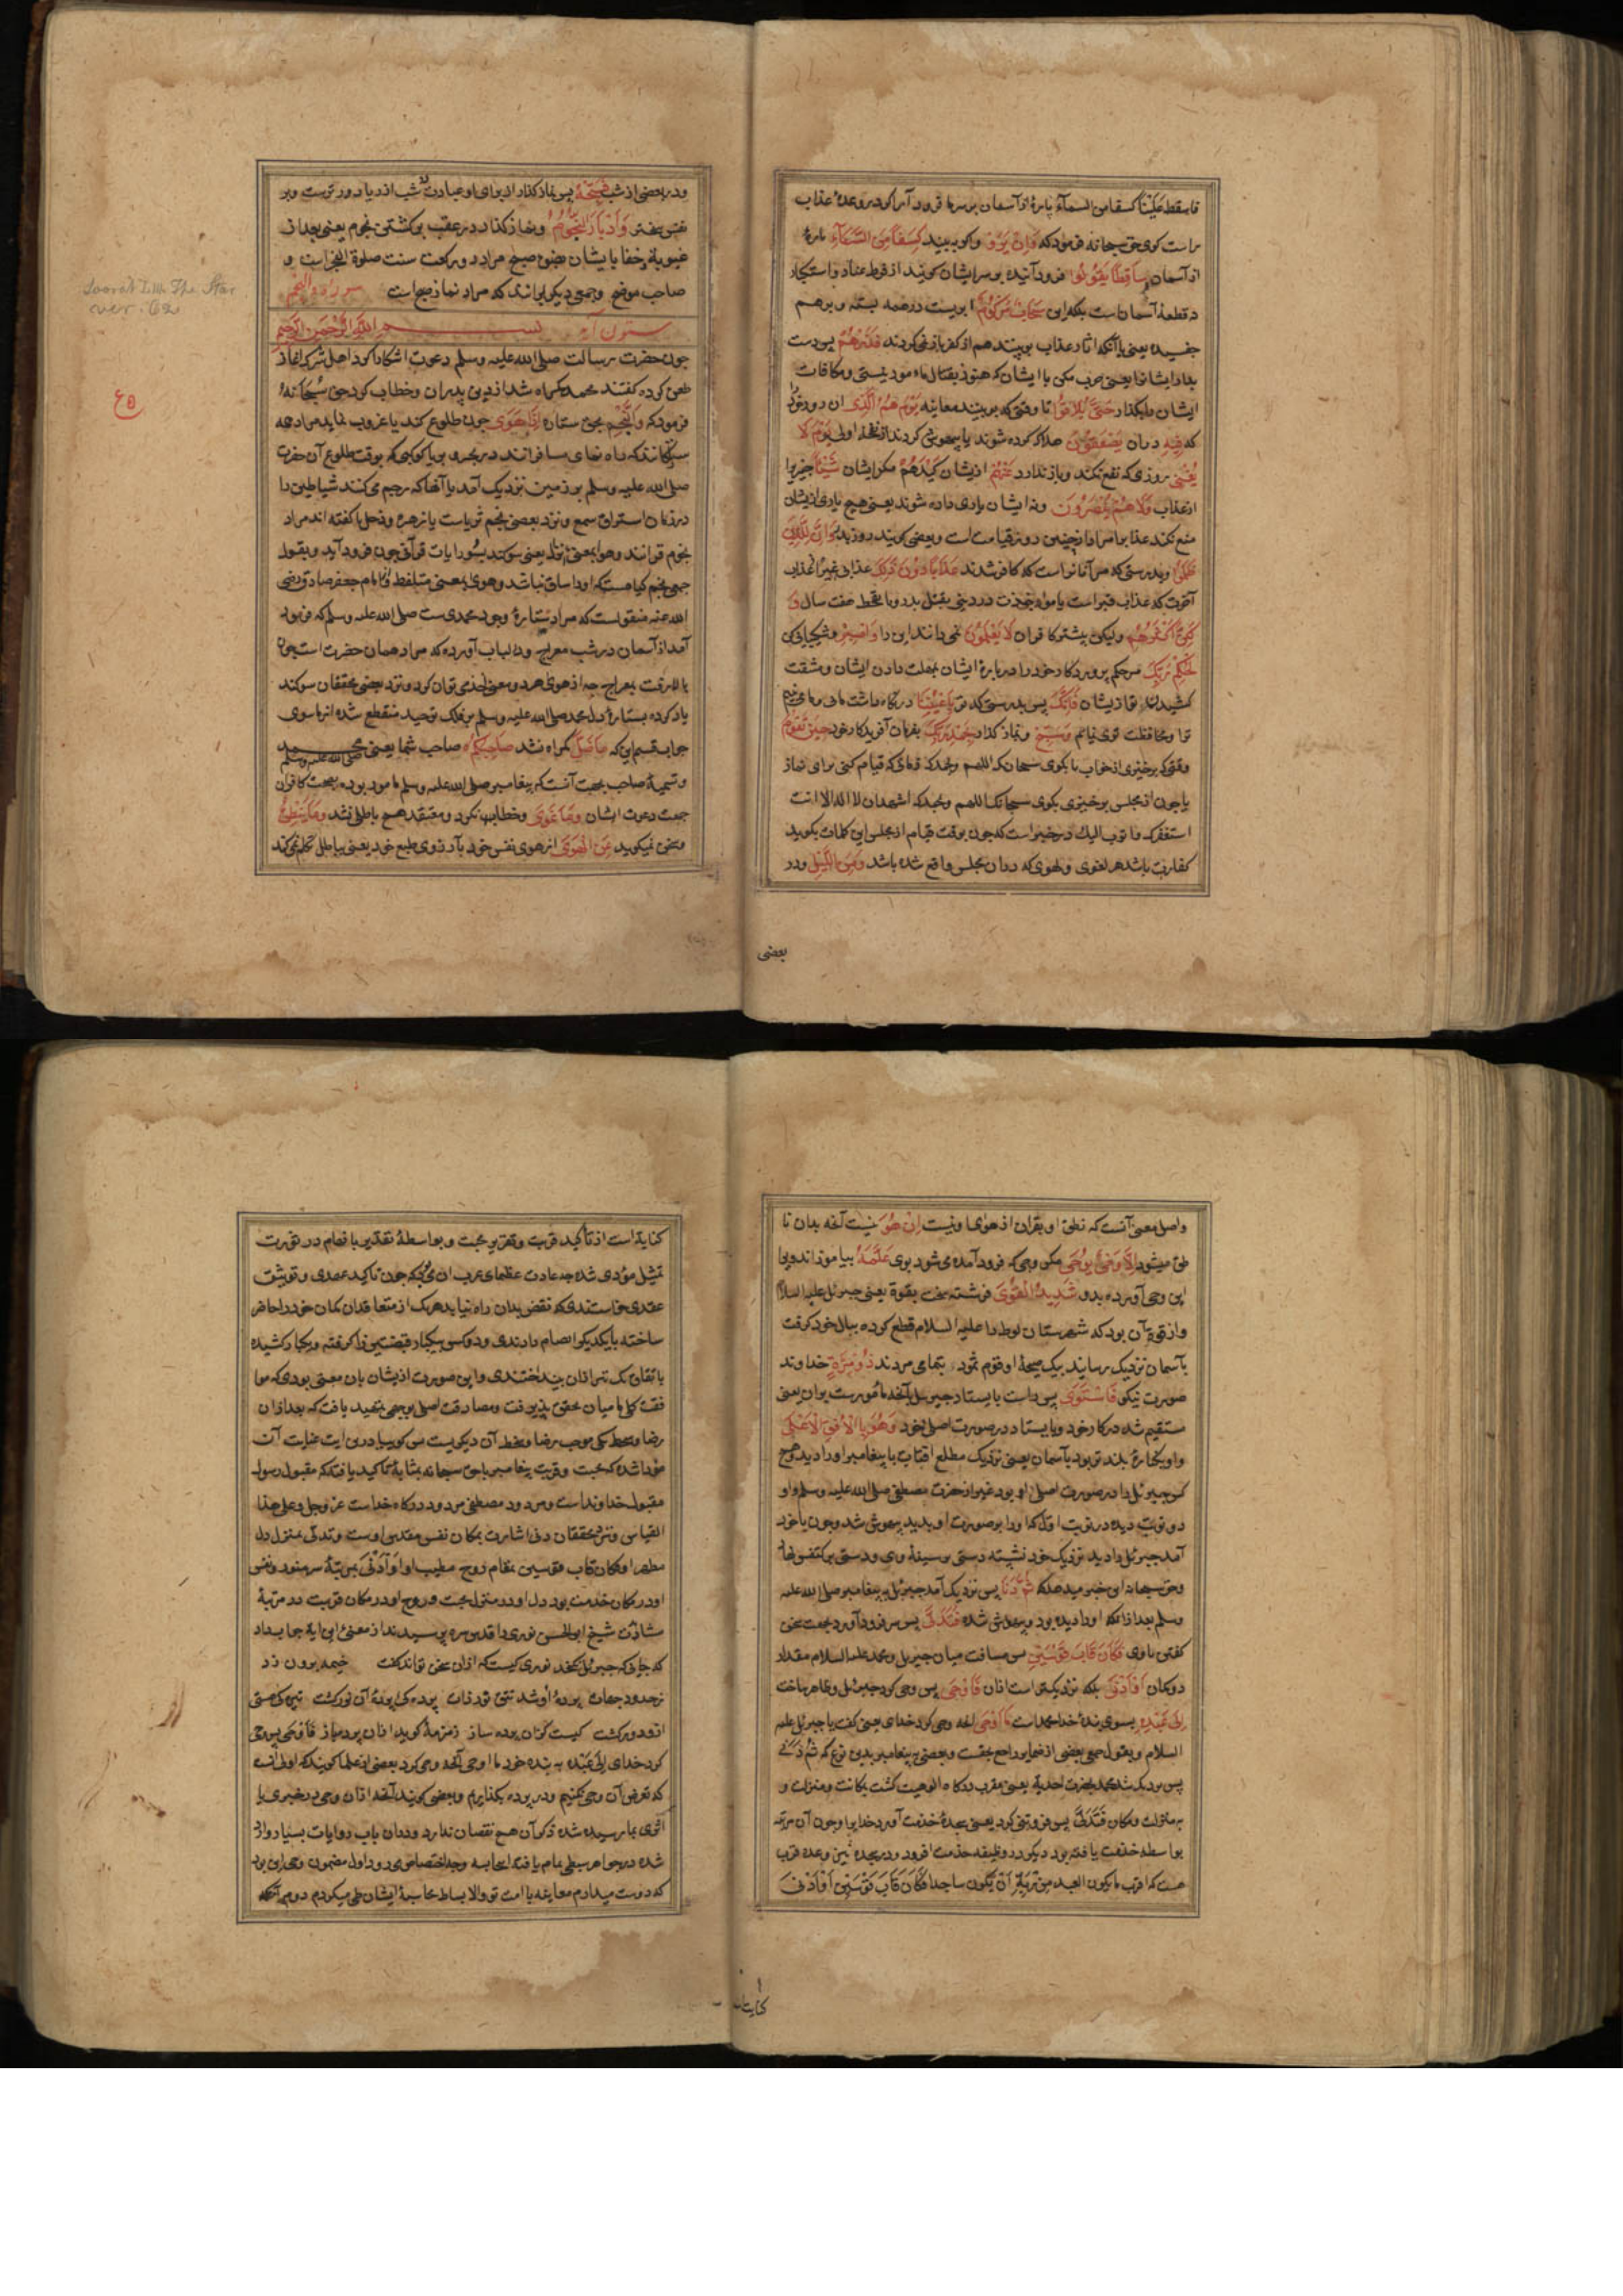 فاسقط علینا کسفا من السماء پارهٔ از آسمان بر سر ما فرود آر اکر در وعدهٔ عذاب
راست کوی حق سبحانه فرمود که وَاِنْ یَرَوْا واکر به بینند کِسَفًا مِنَ السَّمَآءِ پارهٔ
از آسمان سَاقِطًا یَقُولُوا فرود آینده بر سر ایشان کویند از فرط عناد و استکبار
نه قطعهٔ آسمان است بلکه این سَحَابٌ مَرْکُومٌ ابریست در همه بسته و بر هم
یعنی با آنکه اثار عذاب به بینند هم از کفر باز نمی کردند فَذَرْهُمْ پس دست
بدار ایشانرا یعنی حرب مکن با ایشان که هنوز بقتال مامور نیستی و مکافات
ایشان بکذار حَتّٰی یُلَاقُوا تا وقتی که به بینند معاینه یَوْمَهُمُ الَّذِی ان روز خود
که فِیهِ در ان یُصْعَقُونَ هلاک کرده شوند یا بیهوش کردند از نفخهٔ اولی یَوْمَ لَا
یُغْنِی روزی که نفع نکند و باز ندارد عَنْهُمْ از یشان کَیْدُهُمْ مکر ایشان شَیْئًا چیزیرا
از عذاب وَلَا هُمْ یُنْصَرُونَ ونه ایشان یاری داده شوند یعنی هیچ یاری از یشان
منع نکند عذابرا مراد ازین روز قیامت است وبعضی کویند روز بدر وَاِنَّ لِلَّذِینَ
ظَلَمُوا وبدرستی که مر آنانراست که کافر شدند عَذَابًا دُونَ ذٰلِکَ عذابی غیر از عذاب
آخرت که عذاب قبر است یا مواخذت در دنیی بقتل بدر و یا قحط هفت سال وَ
لٰکِنَّ اَکْثَرَهُمْ ولیکن بیشتر کافران لَا یَعْلَمُونَ نمی دانند این را وَاصْبِرْ وشکیبائی کن
لِحُکْمِ رَبِّکَ مر حکم پروردکار خود را در بارهٔ ایشان بمهلت دادن ایشان ومشقت
کشیدن تو از یشان فَاِنَّکَ پس بدرستی که تو بِاَعْیُنِنَا در نکاه داشت مائی وما می بینیم
ترا ومحافظت تو می نمائیم وَسَبِّحْ ونماز کذار بِحَمْدِ رَبِّکَ بفرمان آفریدکار خود حِینَ تَقُومُ
وقتی که برخیزی از خواب یا بکوی سبحانک اللهم وبحمدک زمانی که قیام کنی برای نماز
یا چون از مجلس برخیزی بکوی سبحانک اللهم وبحمدک اشهد ان لا اله الا انت
استغفرک واتوب الیک در خبر است که چون بوقت قیام از مجلس این کلمات بکوید
کفارت باشد هر لغوی ولهوی که در ان مجلس واقع شده باشد وَمِنَ اللَّیْلِ ودر
بعضی
ودر بعضی از شب فَسَبِّحْهُ پس نماز کذار از برای او عبادت شب از ریا دور ترست وبر
نفس وَاِدْبَارَ النُّجُومِ ونماز کذار در عقب بر کشتن نجوم یعنی بعد از
غیبوبة وخفایا ایشان بضوء صبح مراد دو رکعت سنت صلوة الفجر است و
صاحب موضح وجمعی دیکر بر انند که مراد نماز صبح است سورة والنجم
ستون آیه بسم الله الرحمن الرحیم
چون حضرت رسالت صلی الله علیه وسلم دعوت اشکارا کرد اهل شرک اغاز
طعن کرده کفتند محمد کمراه شد از دین پدران وخطاب کرد حق سبحانه
فرمود که وَالنَّجْمِ بحق ستاره اِذَا هَوٰی چون طلوع کند یا غروب نماید مراد همه
ستارکانند که راه نمای مسافرانند در بحر و بر یا کوکبی که بوقت طلوع آن حضرت
صلی الله علیه وسلم بر زمین نزدیک آمد یا آنها که رجیم می کنند شیاطین را
در زمان استراق سمع ونزد بعضی نجم ثریاست یا زهره وزحل یا کفته اند مراد
نجوم قرانند وهوا بمعنی نزل یعنی سوکند بسور وایات قرآنی چون فرود آید وبقول
جمعی نجم کیاهست که او را ساق نباشد وهوی بمعنی وامام جعفر صادق رضی
الله عنه منقولست که مراد ستارهٔ وجود محمدی ست صلی الله علیه وسلم که فرود
آمد از آسمان در شب معراج ودر لباب آورده که مراد همان حضرت است چون
بالا رفت بمعراج چه از هوی هر دو معنی اخذ می توان کرد ونزد بعضی محققان سوکند
یاد کرده بستارهٔ دل محمد صلی الله علیه وسلم بر فلک توحید منقطع شده از ما سوی
جواب قسم این که مَا ضَلَّ کمراه نشد صَاحِبُکُمْ صاحب شما یعنی محمد صلی الله علیه وسلم
وتسمیهٔ صاحب بجهت آنست که پیغامبر صلی الله علیه وسلم مامور بوده بصحبت کافران
جهت دعوت ایشان وَمَا غَوٰی وخطا نکرد ومعتقد هیچ باطلی نشد وَمَا یَنْطِقُ
وسخن نمیکوید عَنِ الْهَوٰی از هوی نفس خود بآرزوی طبع خود یعنی بباطل تکلم نمی کند
Soorah LIII. The Star
ver. 62
واصل معنی آنست که نطق او بقران از هوای او نیست اِنْ هُوَ نیست آنچه بدان نا
طق میشود اِلَّا وَحْیٌ یُوحٰی مکر وحی که فرود آمده می شود بوی عَلَّمَهُ بیاموزاند ویرا
این وحی آورده بدو شَدِیدُ الْقُوٰی فرشته سخت بقوة یعنی جبرئیل علیه السلام
واز قوة آن بود که شهرستان لوط را علیه السلام قطع کرده ببال خود کرفت
بآسمان نزدیک رسانید بیک صیحهٔ او قوم ثمود بتمامی مردند ذُو مِرَّةٍ خداوند
صورت نیکو فَاسْتَوٰی پس راست بایستاد جبرئیل بآنچه مأمورست بر ان یعنی
مستقیم شد در کار خود وبایستاد در صورت اصلی خود وَهُوَ بِالْاُفُقِ الْاَعْلٰی
واو بکنارهٔ بلند تر بود بآسمان یعنی نزدیک مطلع افتاب یا پیغامبر او را دید هیچ
کس جبرئیل را در صورت اصلی ندیده بود غیر از حضرت مصطفی صلی الله علیه وسلم واو
دو نوبت دیده در نوبت اول که او را بر صورت او بدید بیهوش شد وچون با خود
آمد جبرئیل را دید نزدیک خود نشسته دستی بر سینهٔ وی ودستی بر کتفش نهاده
وحق سبحانه از این خبر میدهد که ثُمَّ دَنَا پس نزدیک آمد جبرئیل به پیغامبر صلی الله علیه
وسلم بعد از آنکه او را دیده بود وبیهوش شده فَتَدَلّٰی پس سر فرود آورد بجهت سخن
کفتن با وی فَکَانَ قَابَ قَوْسَیْنِ پس مسافت میان جبریل ومحمد علیه السلام مقدار
دو کمان اَوْ اَدْنٰی بلکه نزدیکتر است از ان فَاَوْحٰی پس وحی کرد جبرئیل وظاهر ساخت
اِلٰی عَبْدِهِ بسوی بندهٔ خدا محمد است مَا اَوْحٰی انچه وحی کرد خدای یعنی کفت با جبریل علیه
السلام وبقول جمعی بعضی از ضمایر راجع بحقست وبعضی به پیغامبر بدین نوع که ثُمَّ دَنٰی
پس نزدیک شد محمد بحضرت احدیة یعنی مقرب درکاه الوهیت کشت بمکانت ومنزلت و
نه بمنزلت ومکان فَتَدَلّٰی پس فروتنی کرد یعنی سجدهٔ خدمت آورد خدایرا وچون آن مرتبه
بواسطه خدمت یافته بود دیکر در وظیفه خدمت افزود ودر سجده نیز وعده قرب
هست که اقرب ما یکون العبد من ربه ان یکون ساجدا فَکَانَ قَابَ قَوْسَیْنِ اَوْ اَدْنٰی
کنایت
کنایة است از تأکید قربت وتقریر محبت وبواسطهٔ تقدیر با فهام در صورت
تمثیل مؤدی شده چه عادت عظمای عرب ان میبود که چون تاکید عهدی وتوثیق
عقدی خواستندی که نقض بدان راه نیابد هر یک از متعاقدان کمان خود را حاضر
ساخته بایکدیکر انضمام دادندی وهر دو کس بیکبار قبضتین را کرفته وبیکبار کشیده
باتفاق یک تیر از ان بینداختندی واین صورت از یشان بان معنی بودی که موا
فقت کلی ما میان محقق پذیرفت ومصادقت اصلی بوجهی تمهید یافت که بعد از ان
رضا وسخط یکی موجب رضا وسخط آن دیکریست پس کوییا در این ایت عنایت آن
مؤدا شده که محبت وقربت پیغامبر باحق سبحانه بمثابهٔ تاکید یافته که مقبول رسول
مقبول خداوند است ومردود مصطفی مردود درکاه خداست عز وجل وعلی هذا
القیاس ونزد محققان دنی اشارت بمکان نفس مقدس اوست وتدلی بمنزل دل
مطهر او فکان قاب قوسین بمقام روح مطیب او اَوْ اَدْنٰی بمرتبهٔ سر منور ونفس
او در مکان خدمت بود دل او در منزل محبت وروح او در مکان قربت در مرتبهٔ
مشاهدت شیخ ابو الحسن نوری را قدس سره پرسیدند از معنی این ایة جواب داد
که جایی که جبرئیل نکنجد نوری کیست که از ان سخن تواند کفت خیمه برون زد
زحدود جهات پردهٔ او شد تتق نور ذات
کیست کزان پرده شود پرده ساز زمزمهٔ کوید از ان پرده باز فَاَوْحٰی پس وحی
کرد خدای اِلٰی عَبْدِهِ به بندهٔ خود مَا اَوْحٰی آنچه وحی کرد بعضی از علما کویند که اولی آنست
که تعرض آن وحی نکنیم ودر پرده بکذاریم وبعضی کویند آنچه از ان وحی در خبری یا
اثری بما رسیده شده ذکر آن هیچ نقصان ندارد ودران باب روایات بسیار وارد
شده در جواهر بسطی تمام یافته اینجا بسه وجه اختصار می رود اول مضمون وحی این بود
که دوست میدارم معاینه با امت تو والا بساط محاسبهٔ ایشان طی میکردم دوم آنکه